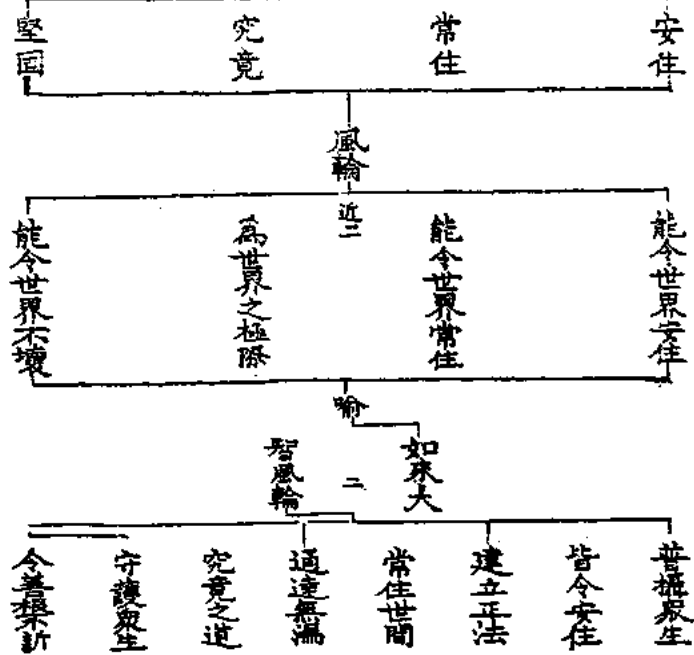 安住
常住
究竟
堅固
風輪
近二
能令世界安住
能令世界常住
為世界之極際
能令世界不壞
喻
如來大
智風輪
二
普攝眾生
皆令安住
建立正法
常住世間
通達無漏
究竟之道
守護眾生
令善